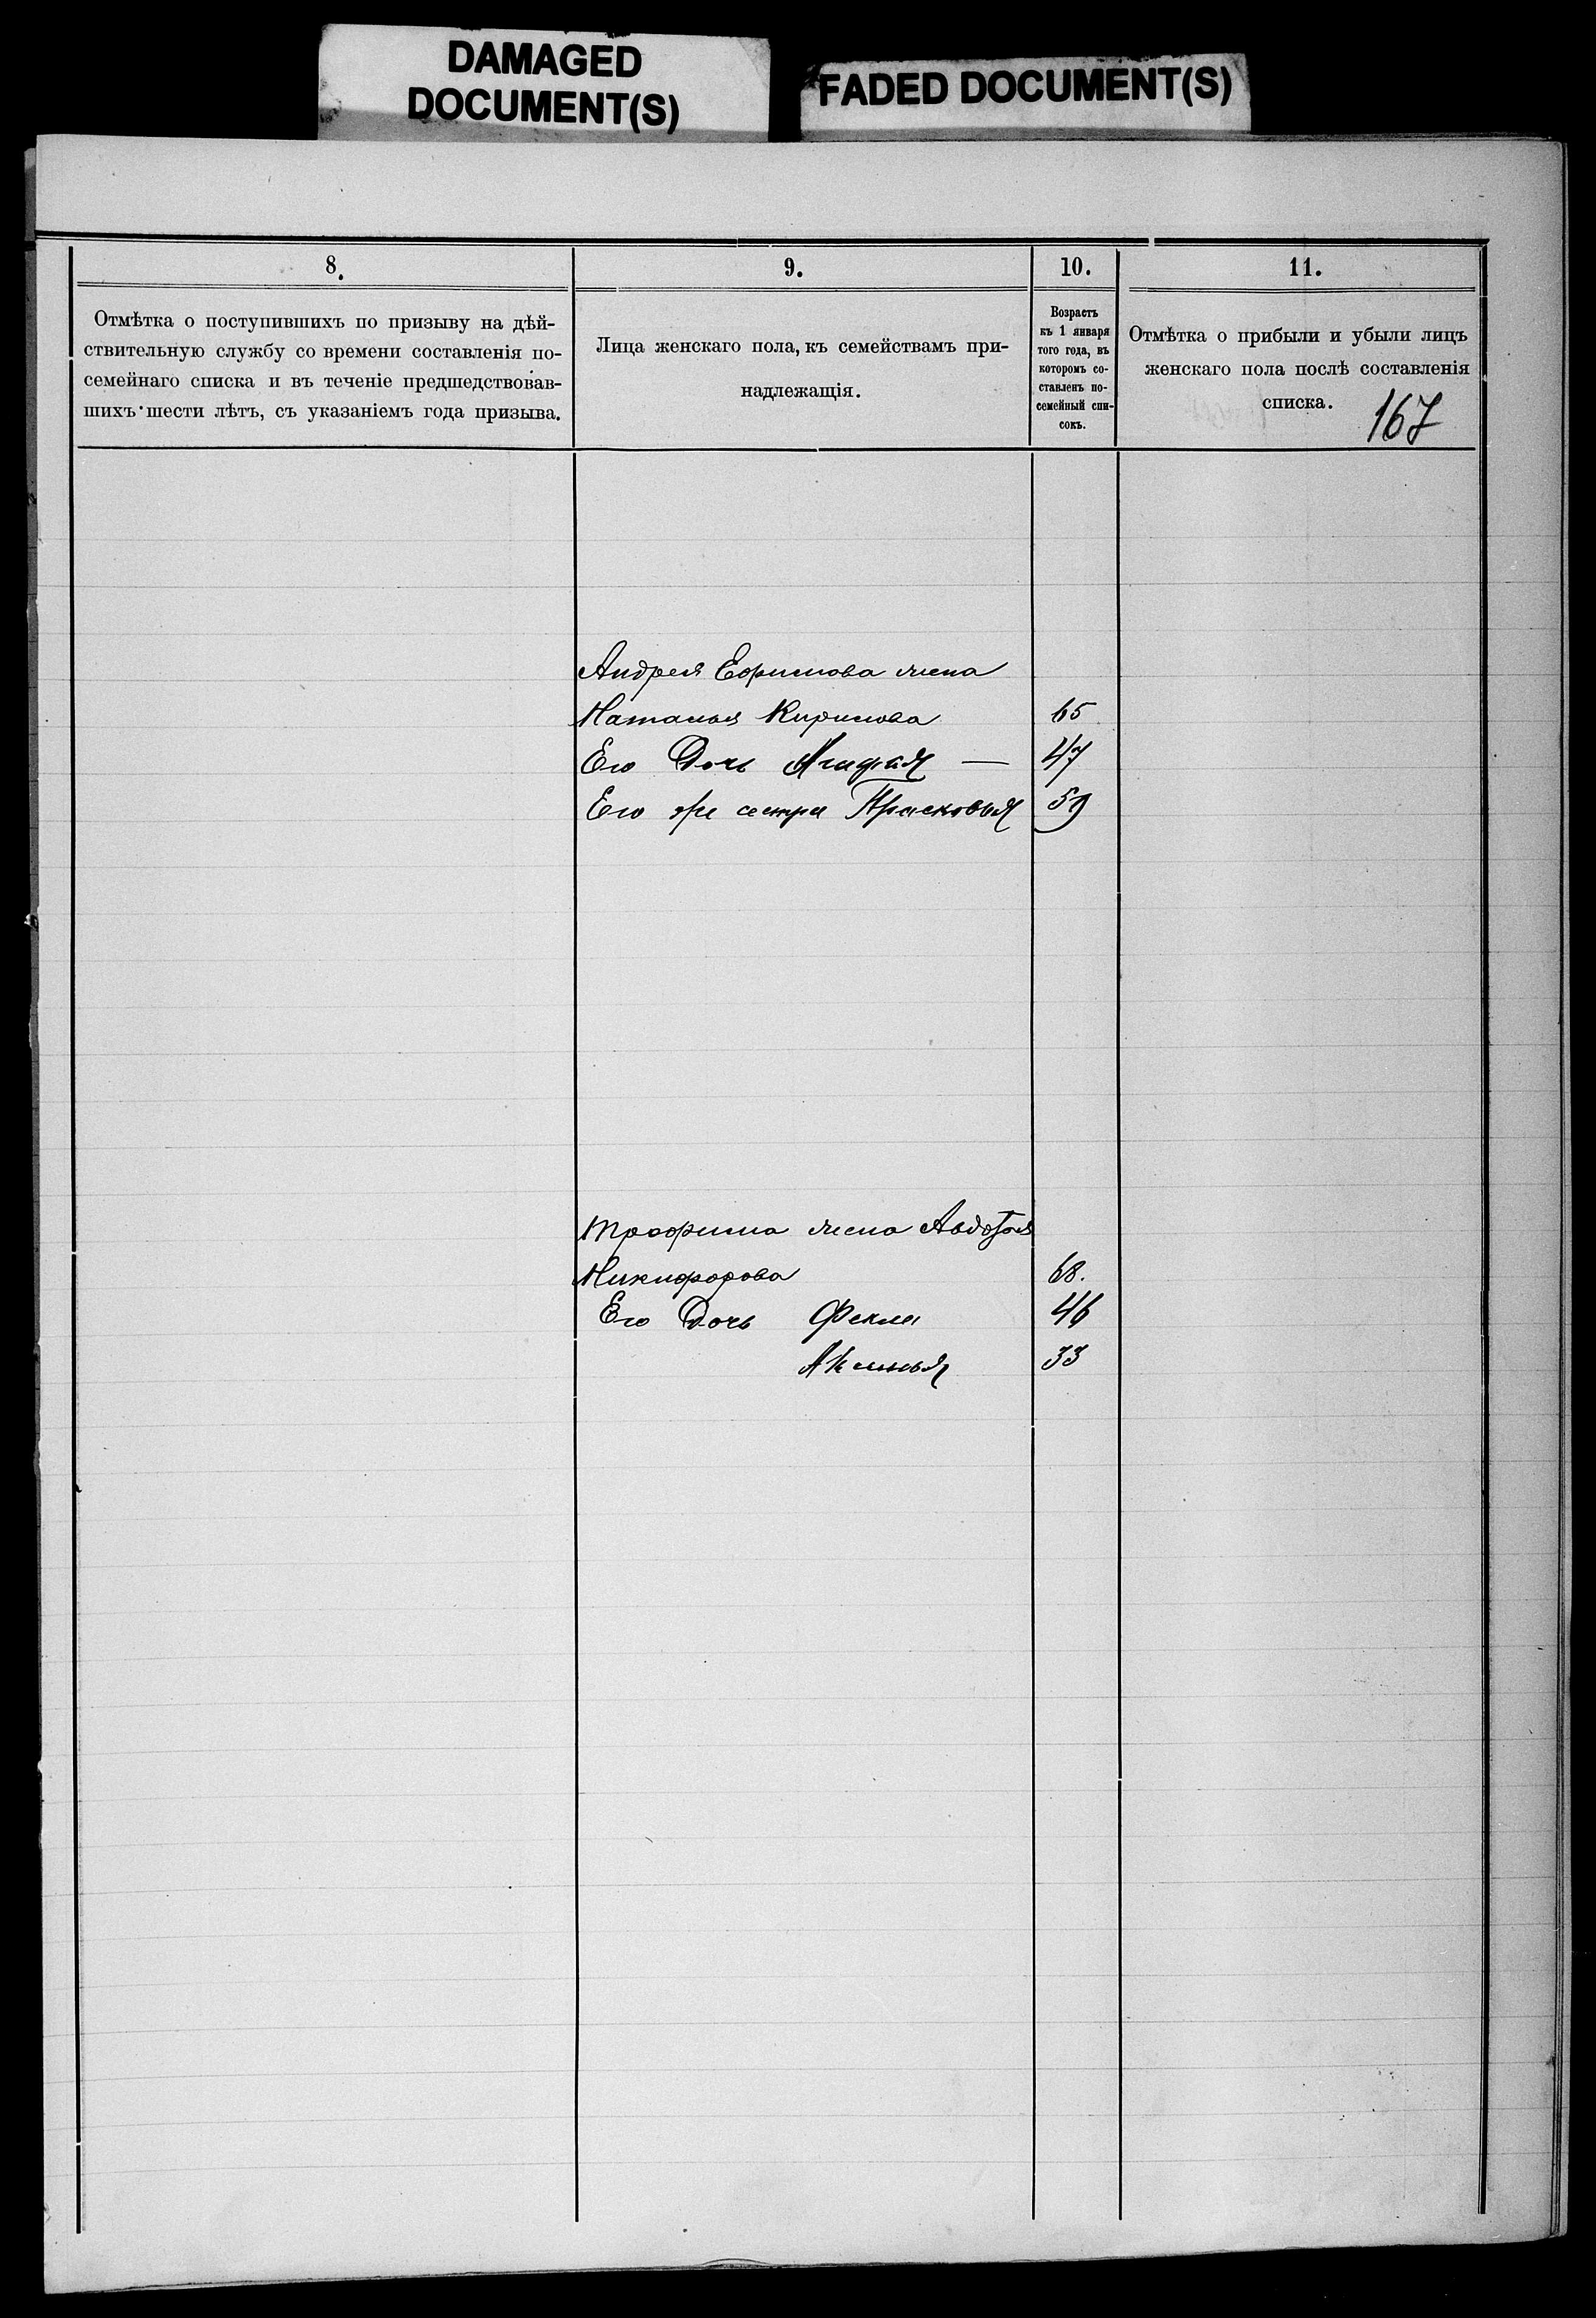 DAMAGED
DOCUMENT(S)
FADED DOCUMENT(S)
8.
Отмѣтка о поступившихъ по призыву на дѣй-
ствительную службу со времени составленія по-
семейнаго списка и въ теченіе предшедствовав-
шихъ шести лѣтъ, съ указаніемъ года призыва.
9.
Лица женскаго пола, къ семействамъ при-
надлежащія.
10.
Возрастъ
къ 1 января
того года, въ
которомъ со-
ставленъ по-
семейный спи-
сокъ.
11.
Отмѣтка о прибыли и убыли лицъ
женскаго пола послѣ составленія
списка.
167
Андрея Ефимова жена
Наталья Кирилова 65
Его Дочь 47
Его же сестра Прасковья 59
Трофима жена Авдотья
Никифорова 68.
Его Дочь Фекла 46
Аксинья 33